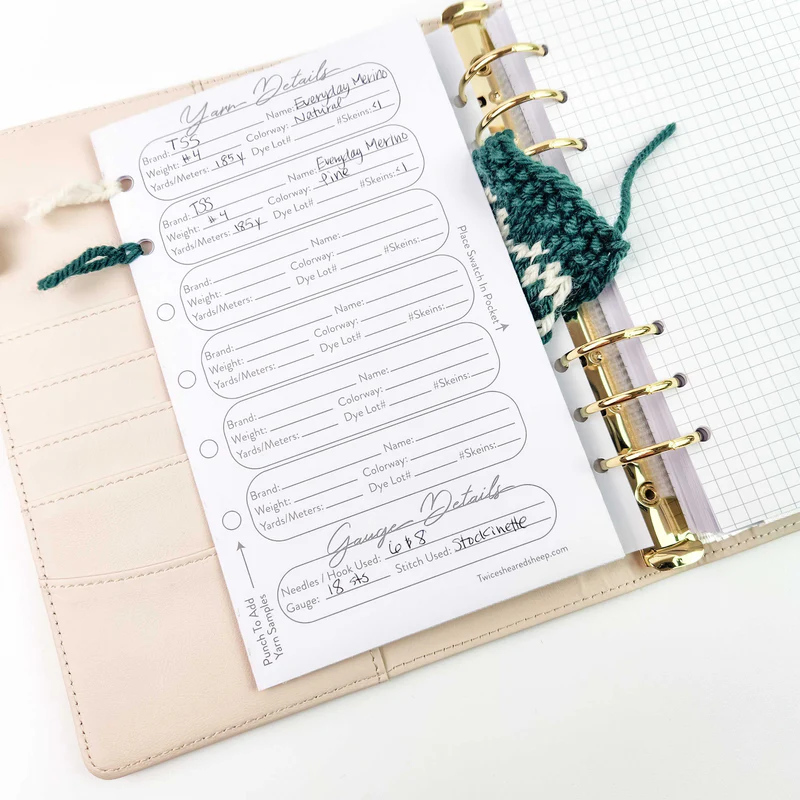 Yarn Details
Brand: TSS Name: Everyday Merino
Weight: #4 Colorway: Natural
Yards/Meters: 185y Dye Lot# #Skeins: <1
Brand: TSS Name: Everyday Merino
Weight: #4 Colorway: Pine
Yards/Meters: 185y Dye Lot# #Skeins: <1
Brand: Name:
Weight: Colorway:
Yards/Meters: Dye Lot# #Skeins:
Brand: Name:
Weight: Colorway:
Yards/Meters: Dye Lot# #Skeins:
Brand: Name:
Weight: Colorway:
Yards/Meters: Dye Lot# #Skeins:
Brand: Name:
Weight: Colorway:
Yards/Meters: Dye Lot# #Skeins:
Place Swatch In Pocket
Gauge Details
Needles / Hook Used: 6 & 8
Gauge: 18 sts Stitch Used: Stockinette
Punch To Add
Yarn Samples
Twicesshearedsheep.com